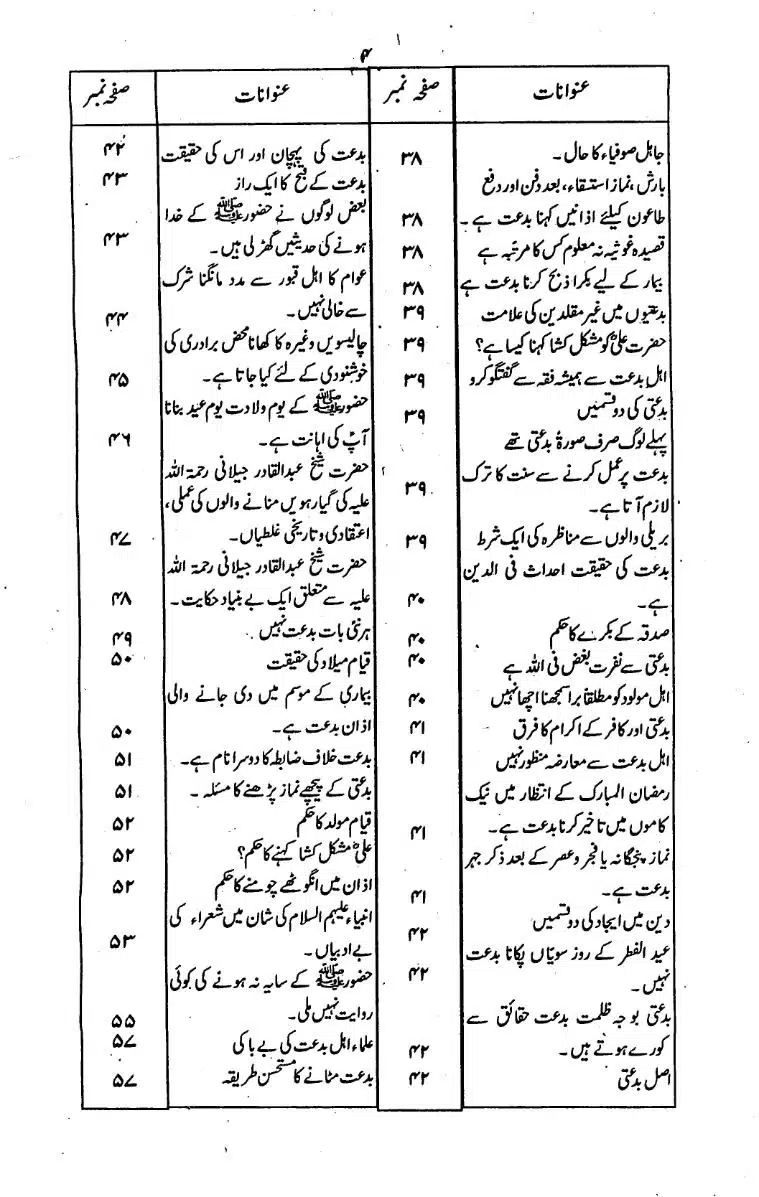 ۴
عنوانات
صفحہ نمبر
جاہل صوفیاء کا حال۔ ۳۸
بارش، نماز استسقاء، بعد دفن اور دفع
طاعون کیلئے اذانیں کہنا بدعت ہے۔ ۳۸
قصیدہ غوثیہ نہ معلوم کس کا مرتبہ ہے ۳۸
بیمار کے لیے بکرا ذبح کرنا بدعت ہے ۳۸
بدعتیوں میں غیر مقلدین کی علامت ۳۹
حضرت علیؓ کو مشکل کشا کہنا کیسا ہے؟ ۳۹
اہل بدعت سے ہمیشہ فقہ سے گفتگو کرو ۳۹
بدعتی کی دو قسمیں ۳۹
پہلے لوگ صرف صورۃً بدعتی تھے
بدعت پر عمل کرنے سے سنت کا ترک
لازم آتا ہے۔ ۳۹
بریلی والوں سے مناظرہ کی ایک شرط ۳۹
بدعت کی حقیقت احداث فی الدین
ہے۔ ۴۰
صدقہ کے بکرے کا حکم ۴۰
بدعتی سے نفرت بغض فی اللہ ہے ۴۰
اہل مولود کو مطلقاً برا سمجھنا اچھا نہیں ۴۰
بدعتی اور کافر کے اکرام کا فرق ۴۱
اہل بدعت سے معارضہ منظور نہیں ۴۱
رمضان المبارک کے انتظار میں نیک
کاموں میں تاخیر کرنا بدعت ہے۔ ۴۱
نماز پنجگانہ یا فجر و عصر کے بعد ذکر جہر
بدعت ہے۔ ۴۱
دین میں ایجاد کی دو قسمیں ۴۲
عید الفطر کے روز سویّاں پکانا بدعت ۴۲
نہیں۔
بدعتی بوجہ ظلمت بدعت حقائق سے
کورے ہوتے ہیں۔ ۴۲
اصل بدعتی ۴۲
عنوانات
صفحہ نمبر
بدعت کی پہچان اور اس کی حقیقت ۴۲
بدعت کے قبح کا ایک راز ۴۳
بعض لوگوں نے حضور ﷺ کے خدا
ہونے کی حدیثیں گھڑ لی ہیں۔ ۴۳
عوام کا اہل قبور سے مدد مانگنا شرک
سے خالی نہیں۔ ۴۴
چالیسویں وغیرہ کا کھانا محض برادری کی
خوشنودی کے لئے کیا جاتا ہے۔ ۴۵
حضور ﷺ کے یوم ولادت یوم عید بنانا
آپؐ کی اہانت ہے۔ ۴۶
حضرت شیخ عبدالقادر جیلانی رحمۃ اللہ
علیہ کی گیارہویں منانے والوں کی عملی،
اعتقادی و تاریخی غلطیاں۔ ۴۷
حضرت شیخ عبدالقادر جیلانی رحمۃ اللہ
علیہ سے متعلق ایک بے بنیاد حکایت۔ ۴۸
ہر نئی بات بدعت نہیں ۴۹
قیام میلاد کی حقیقت ۵۰
بیماری کے موسم میں دی جانے والی
اذان بدعت ہے۔ ۵۰
بدعت خلاف ضابطہ کا دوسرا نام ہے۔ ۵۱
بدعتی کے پیچھے نماز پڑھنے کا مسئلہ۔ ۵۱
قیام مولد کا حکم ۵۲
علیؓ مشکل کشا کہنے کا حکم؟ ۵۲
اذان میں انگوٹھے چومنے کا حکم ۵۲
انبیاء علیہم السلام کی شان میں شعراء کی
بے ادبیاں۔ ۵۳
حضور ﷺ کے سایہ نہ ہونے کی کوئی
روایت نہیں ملی۔ ۵۵
علماء اہل بدعت کی بے باکی ۵۷
بدعت مٹانے کا مستحسن طریقہ ۵۷